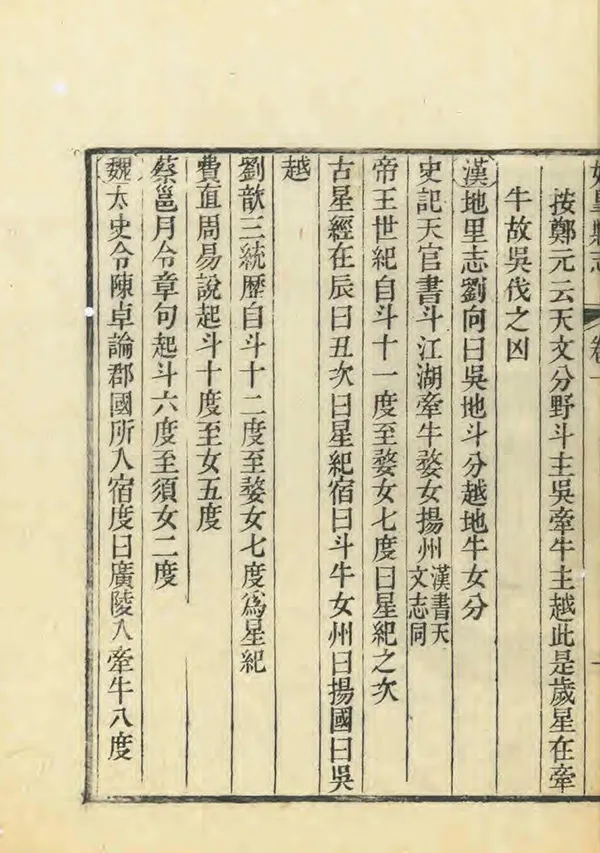 如皋縣志 卷一
按鄭元云天文分野斗主吳牽牛主越此是歲星在牽
牛故吳伐之凶
漢地里志劉向曰吳地斗分越地牛女分
史記天官書斗江湖牽牛婺女揚州漢書天文志同
帝王世紀自斗十一度至婺女七度曰星紀之次
古星經在辰曰丑次曰星紀宿曰斗牛女州曰揚國曰吳
越
劉歆三統歷自斗十二度至婺女七度爲星紀
費直周易說起斗十度至女五度
蔡邕月令章句起斗六度至須女二度
魏太史令陳卓論郡國所入宿度曰廣陵入牽牛八度